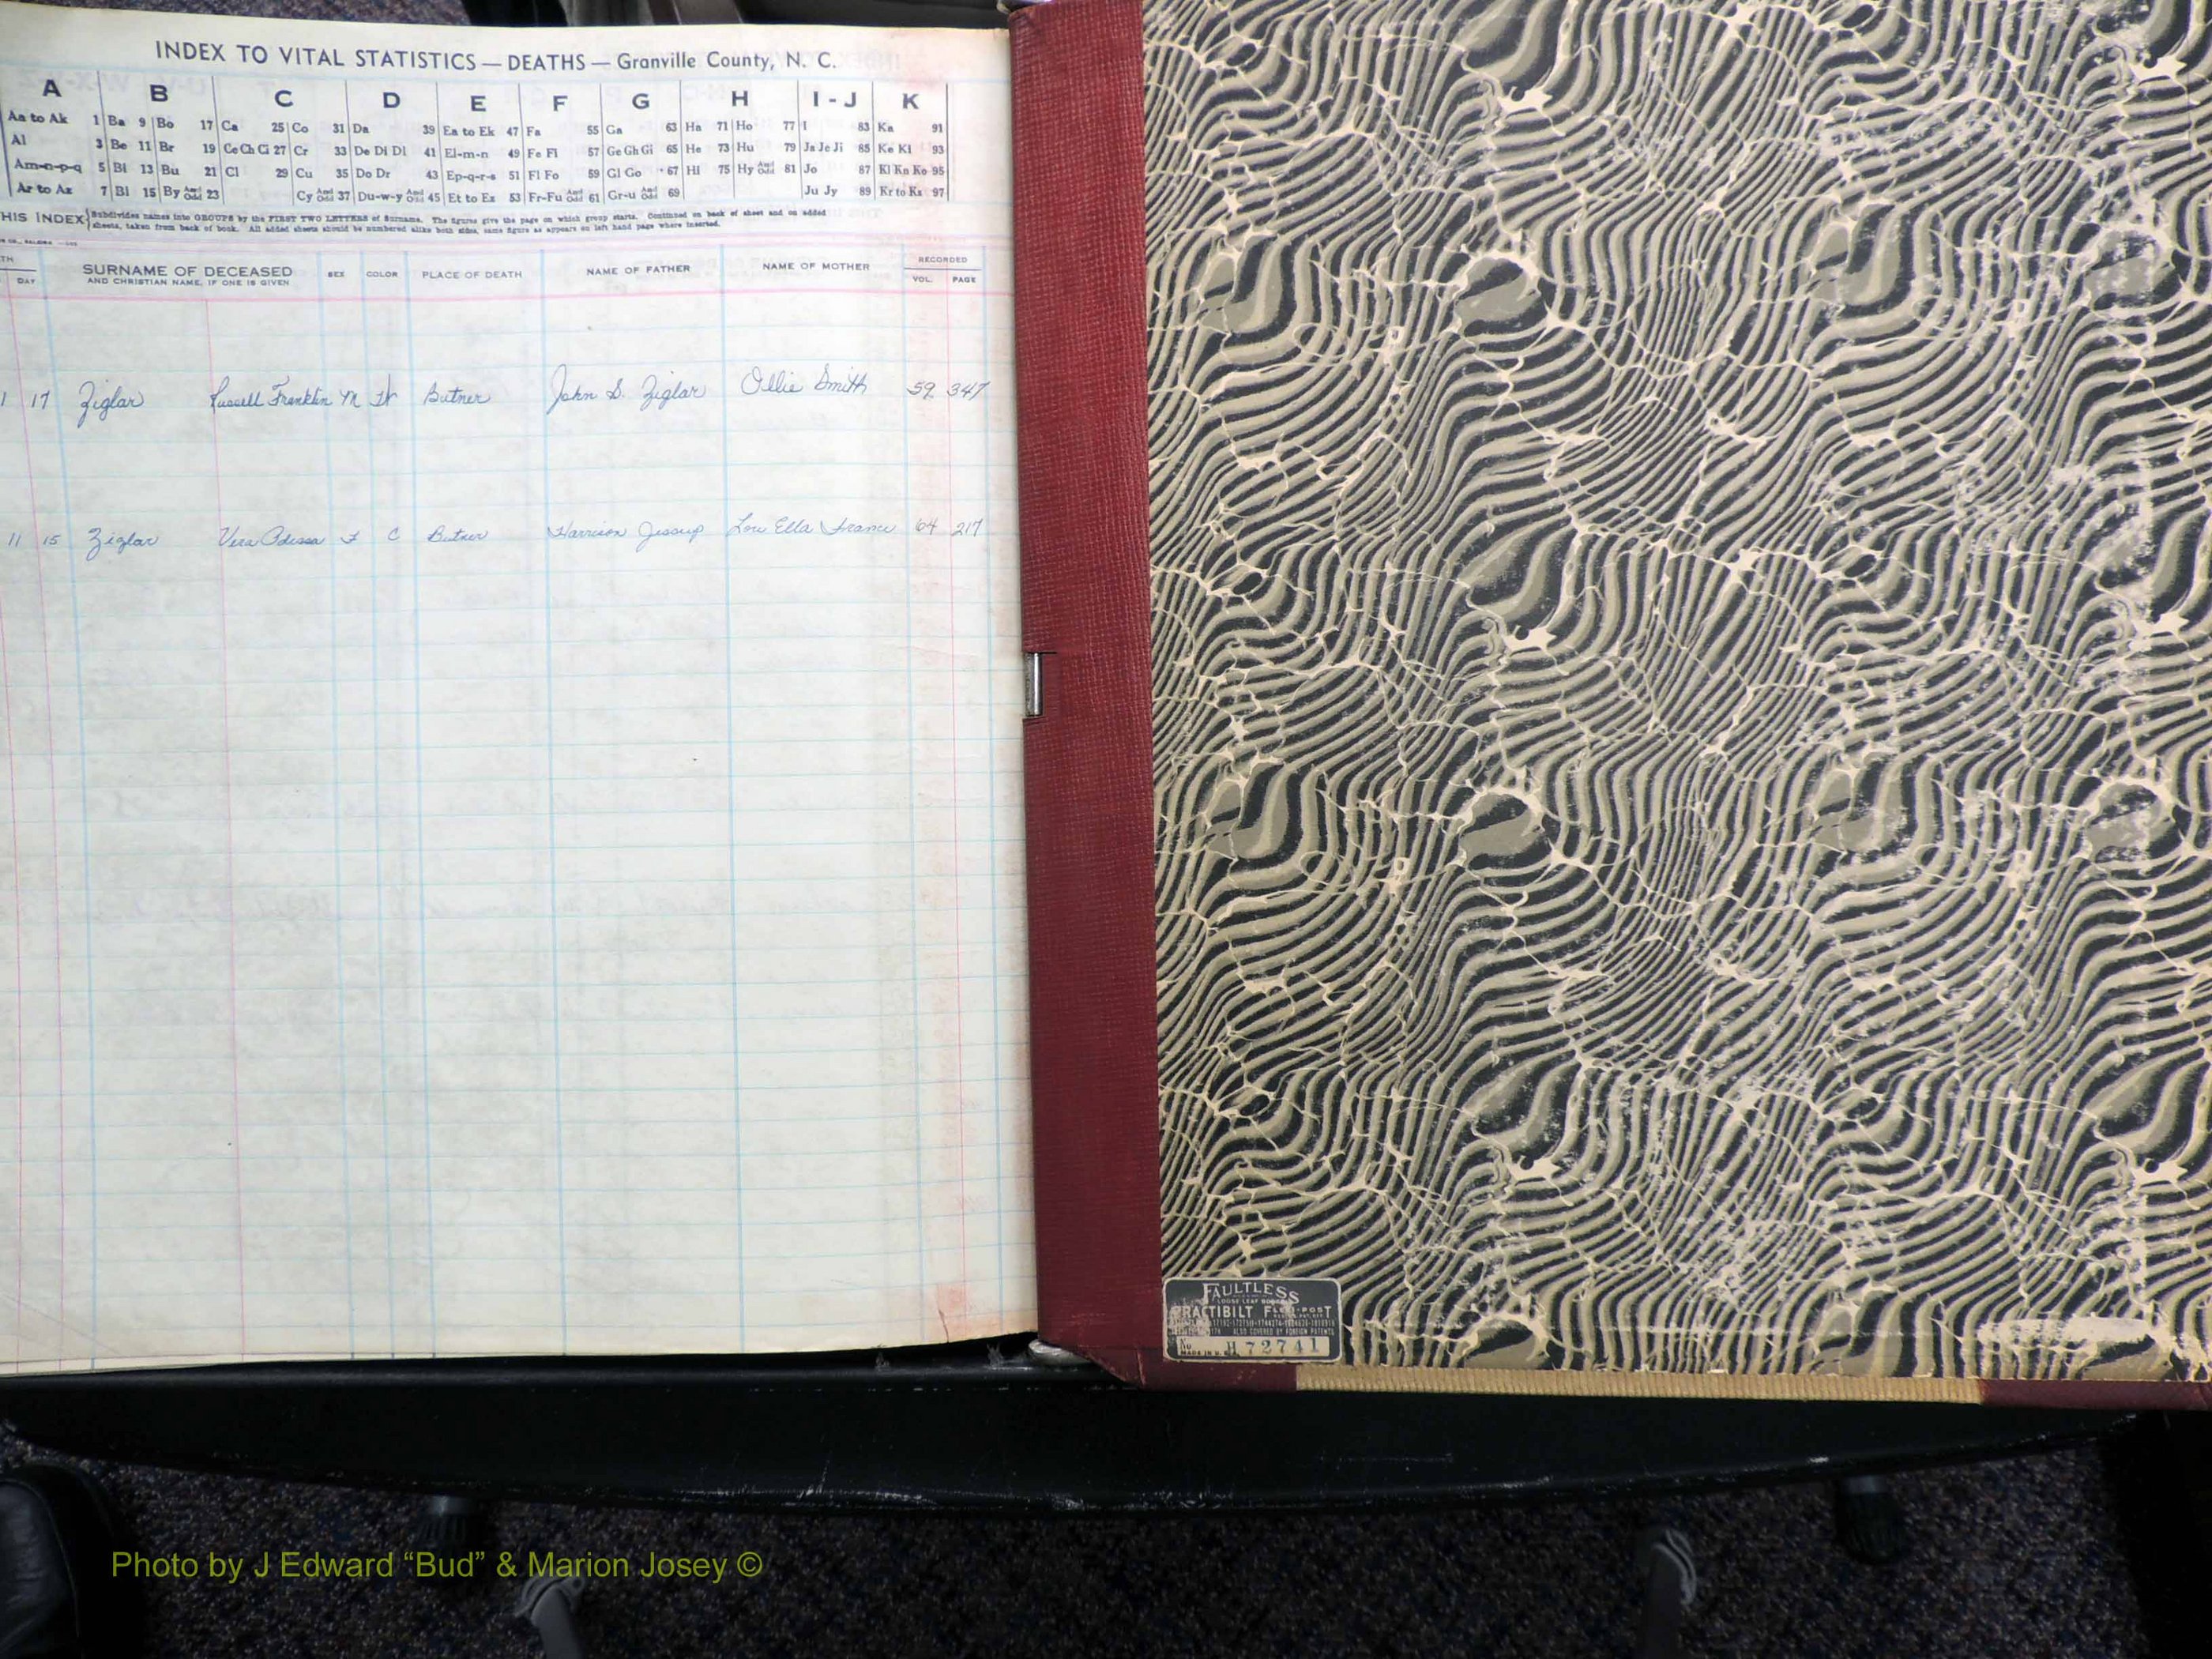 INDEX TO VITAL STATISTICS — DEATHS — Granville County, N. C.
A B C D E F G H I-J K
Aa to Ak 1 Ba 9 Bo 17 Ca 25 Co 31 Da 39 Ea to Ek 47 Fa 55 Ga 63 Ha 71 Ho 77 I 83 Ka 91
Al 3 Be 11 Br 19 Ce Ch Ci 27 Cr 33 De Di Dl 41 El-m-n 49 Fe Fi 57 Ge Gh Gi 65 He 73 Hu 79 Ja Je Ji 85 Ke Ki 93
Am-n-p-q 5 Bi 13 Bu 21 Cl 29 Cu 35 Do Dr 43 Ep-q-r-s 51 Fl Fo 59 Gl Go 67 Hi 75 Hy And Odd 81 Jo 87 Kl Kn Ko 95
Ar to Az 7 Bl 15 By And Odd 23 Cy And Odd 37 Du-w-y And Odd 45 Et to Ez 53 Fr-Fu And Odd 61 Gr-u And Odd 69 Ju Jy 89 Kr to Kz 97
HIS INDEX Subdivides names into GROUPS by the FIRST TWO LETTERS of Surname. The figures give the page on which group starts. Continued on back of sheet and on added
sheets, taken from back of book. All added sheets should be numbered alike both sides, same figure as appears on left hand page where inserted.
TH SURNAME OF DECEASED SEX COLOR PLACE OF DEATH NAME OF FATHER NAME OF MOTHER RECORDED
DAY AND CHRISTIAN NAME, IF ONE IS GIVEN VOL. PAGE
1 17 Ziglar Russell Franklin M W Butner John S. Ziglar Ollie Smith 59 347
11 15 Ziglar Vera Odessa F C Butner Harrison Jessup Lou Ella France 64 217
FAULTLESS
LOOSE LEAF BOOKS
PRACTIBILT FLEXI-POST
ALSO COVERED BY FOREIGN PATENTS
No H 72741
MADE IN U.S.
Photo by J Edward “Bud” & Marion Josey ©